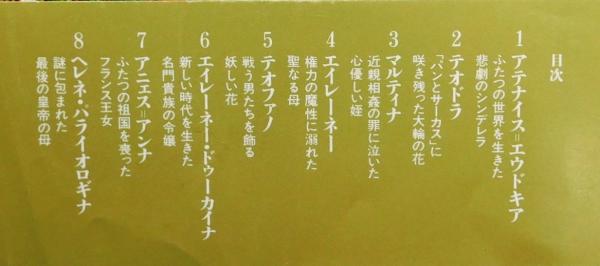 目次
1 アテナイス=エウドキア
ふたつの世界を生きた
悲劇のシンデレラ
2 テオドラ
「パンとサーカス」に
咲き残った大輪の花
3 マルティナ
近親相姦の罪に泣いた
心優しい姪
4 エイレーネー
権力の魔性に溺れた
聖なる母
5 テオファノ
戦う男たちを飾る
妖しい花
6 エイレーネー・ドゥーカイナ
新しい時代を生きた
名門貴族の令嬢
7 アニェス=アンナ
ふたつの祖国を喪った
フランス王女
8 ヘレネ・パライオロギナ
謎に包まれた
最後の皇帝の母